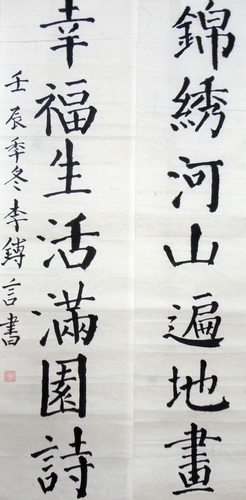 錦綉河山遍地畫
幸福生活滿園詩
壬辰季冬李鏄言書